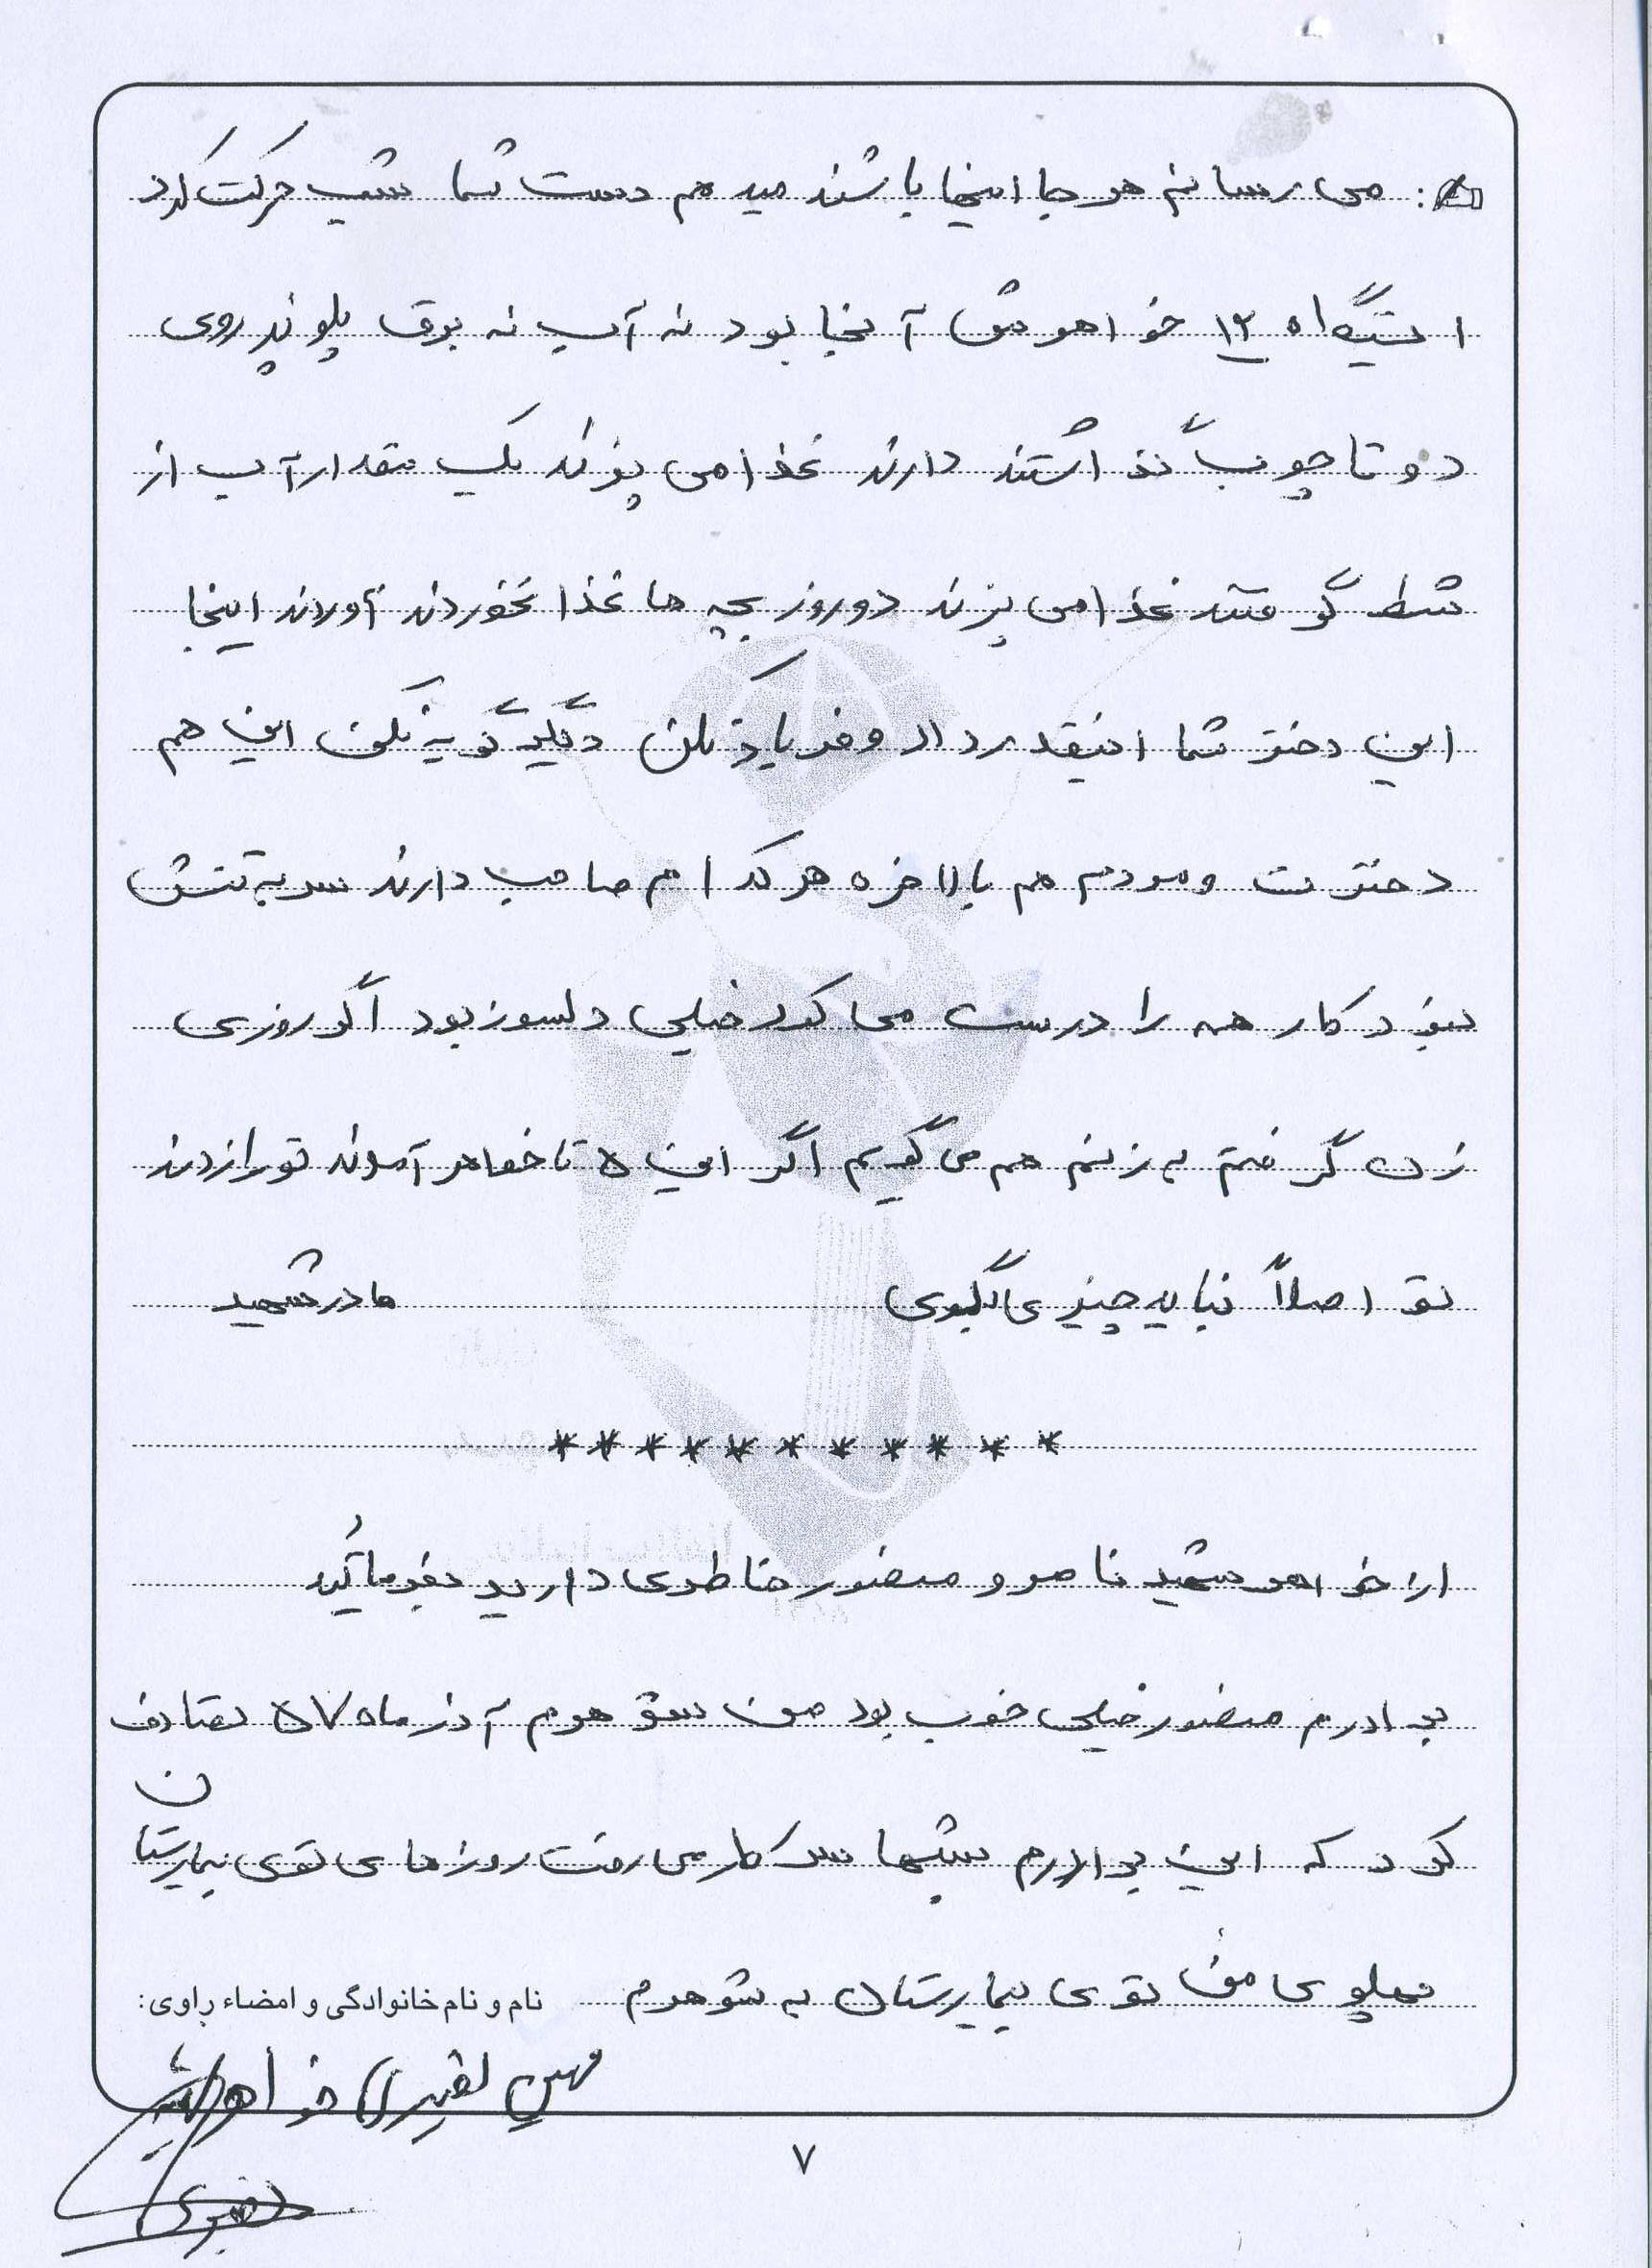 می رسانم هر جا اینجا باشند میدهم دست شما شب حرکت کرد
ایستگاه ۱۲ خواهرش آنجا بود نه آب نه برق پلوپز روی
دو تا چوب گذاشتند دارند غذا می پزند یک مقدار آب از
شط گرفتند غذا می پزند دو روز بچه ها غذا نخوردند آوردند اینجا
این دختر شما اینقدر داد و فریاد نکن دیگر گریه نکن این هم
دخترت و مردم هم بالاخره هر کدام صاحب دارند سر به تنش
نبود کار همه را درست می کرد خیلی دلسوز بود اگر روزی
زن گرفتم به زنم هم می گویم اگر این ۵ تا خواهر آمدند تو را زدند
تو اصلاً نباید چیزی بگوی مادر شهید
* * * * * * * * * * *
از خواهر شهید ناصر و منصور خاطره ی دارید بفرمائید
برادرم منصور خیلی خوب بود من شوهرم آذر ماه ۵۷ تصادف
کرد که این برادرم شبها سر کار می رفت روزها ی توی بیمارستان
پهلوی من توی بیمارستان به شوهرم
نام و نام خانوادگی و امضاء راوی:
خواهر شهید
۷